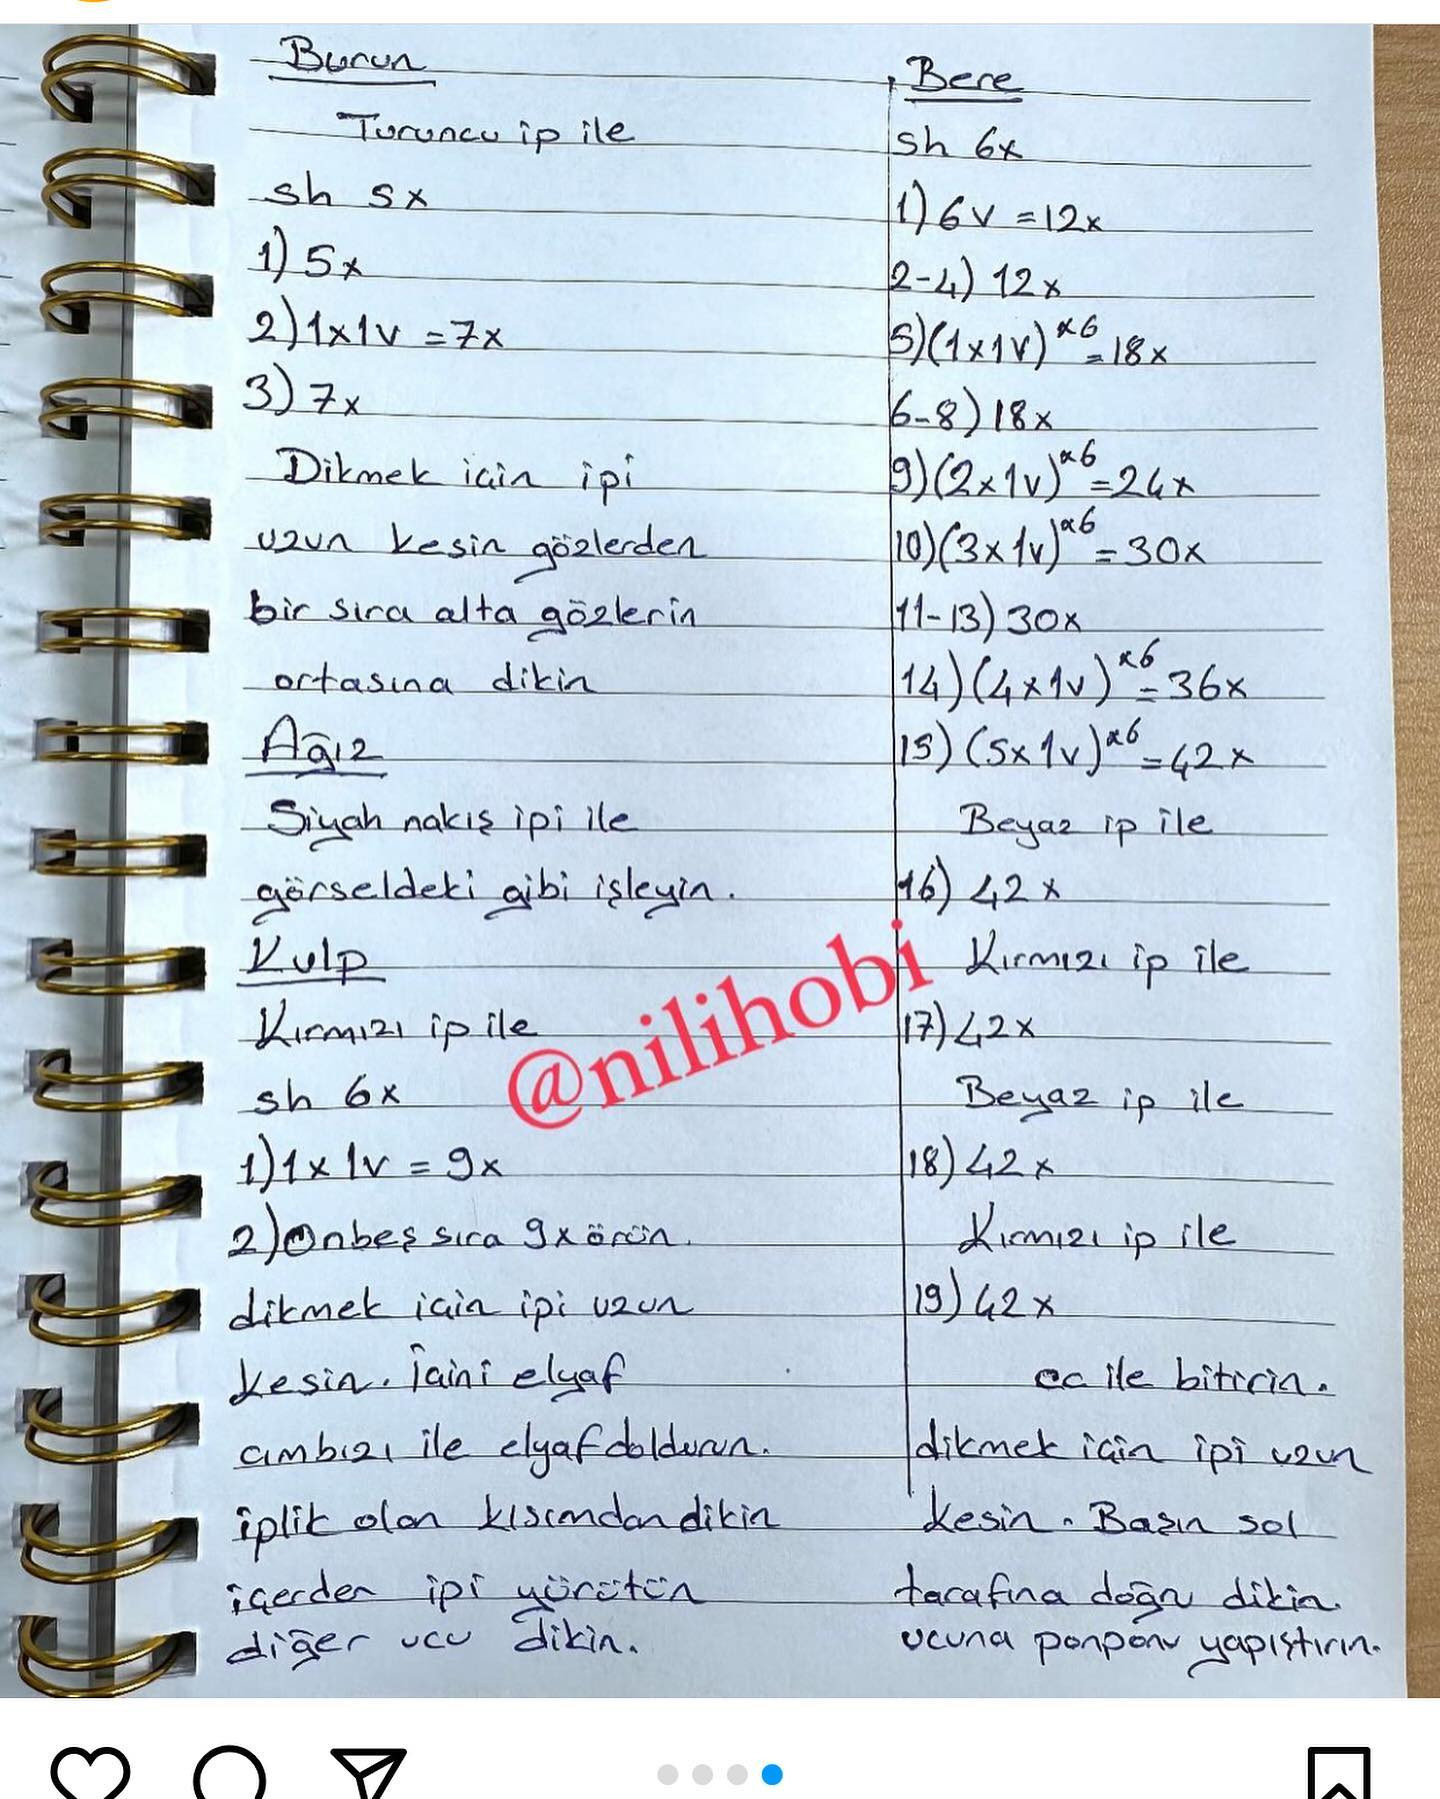 Burun
Turuncu ip ile
sh 5x
1) 5x
2) 1x1v = 7x
3) 7x
Dikmek için ipi
uzun kesin gözlerden
bir sıra alta gözlerin
ortasına dikin
Ağız
Siyah nakış ipi ile
görseldeki gibi işleyin.
Kulp
Kırmızı ip ile
sh 6x
1) 1x1v = 9x
2) Onbeş sıra 9x örün.
dikmek için ipi uzun
kesin. İçini elyaf
cımbızı ile elyaf doldurun.
iplik olan kısımdan dikin
içerden ipi yürütün
diğer ucu dikin.
Bere
sh 6x
1) 6v = 12x
2-4) 12x
5) (1x1v) x6 = 18x
6-8) 18x
9) (2x1v) x6 = 24x
10) (3x1v) x6 = 30x
11-13) 30x
14) (4x1v) x6 = 36x
15) (5x1v) x6 = 42x
Beyaz ip ile
16) 42x
Kırmızı ip ile
17) 42x
Beyaz ip ile
18) 42x
Kırmızı ip ile
19) 42x
cc ile bitirin.
dikmek için ipi uzun
kesin. Başın sol
tarafına doğru dikin.
ucuna ponponu yapıştırın.
@nilihobi